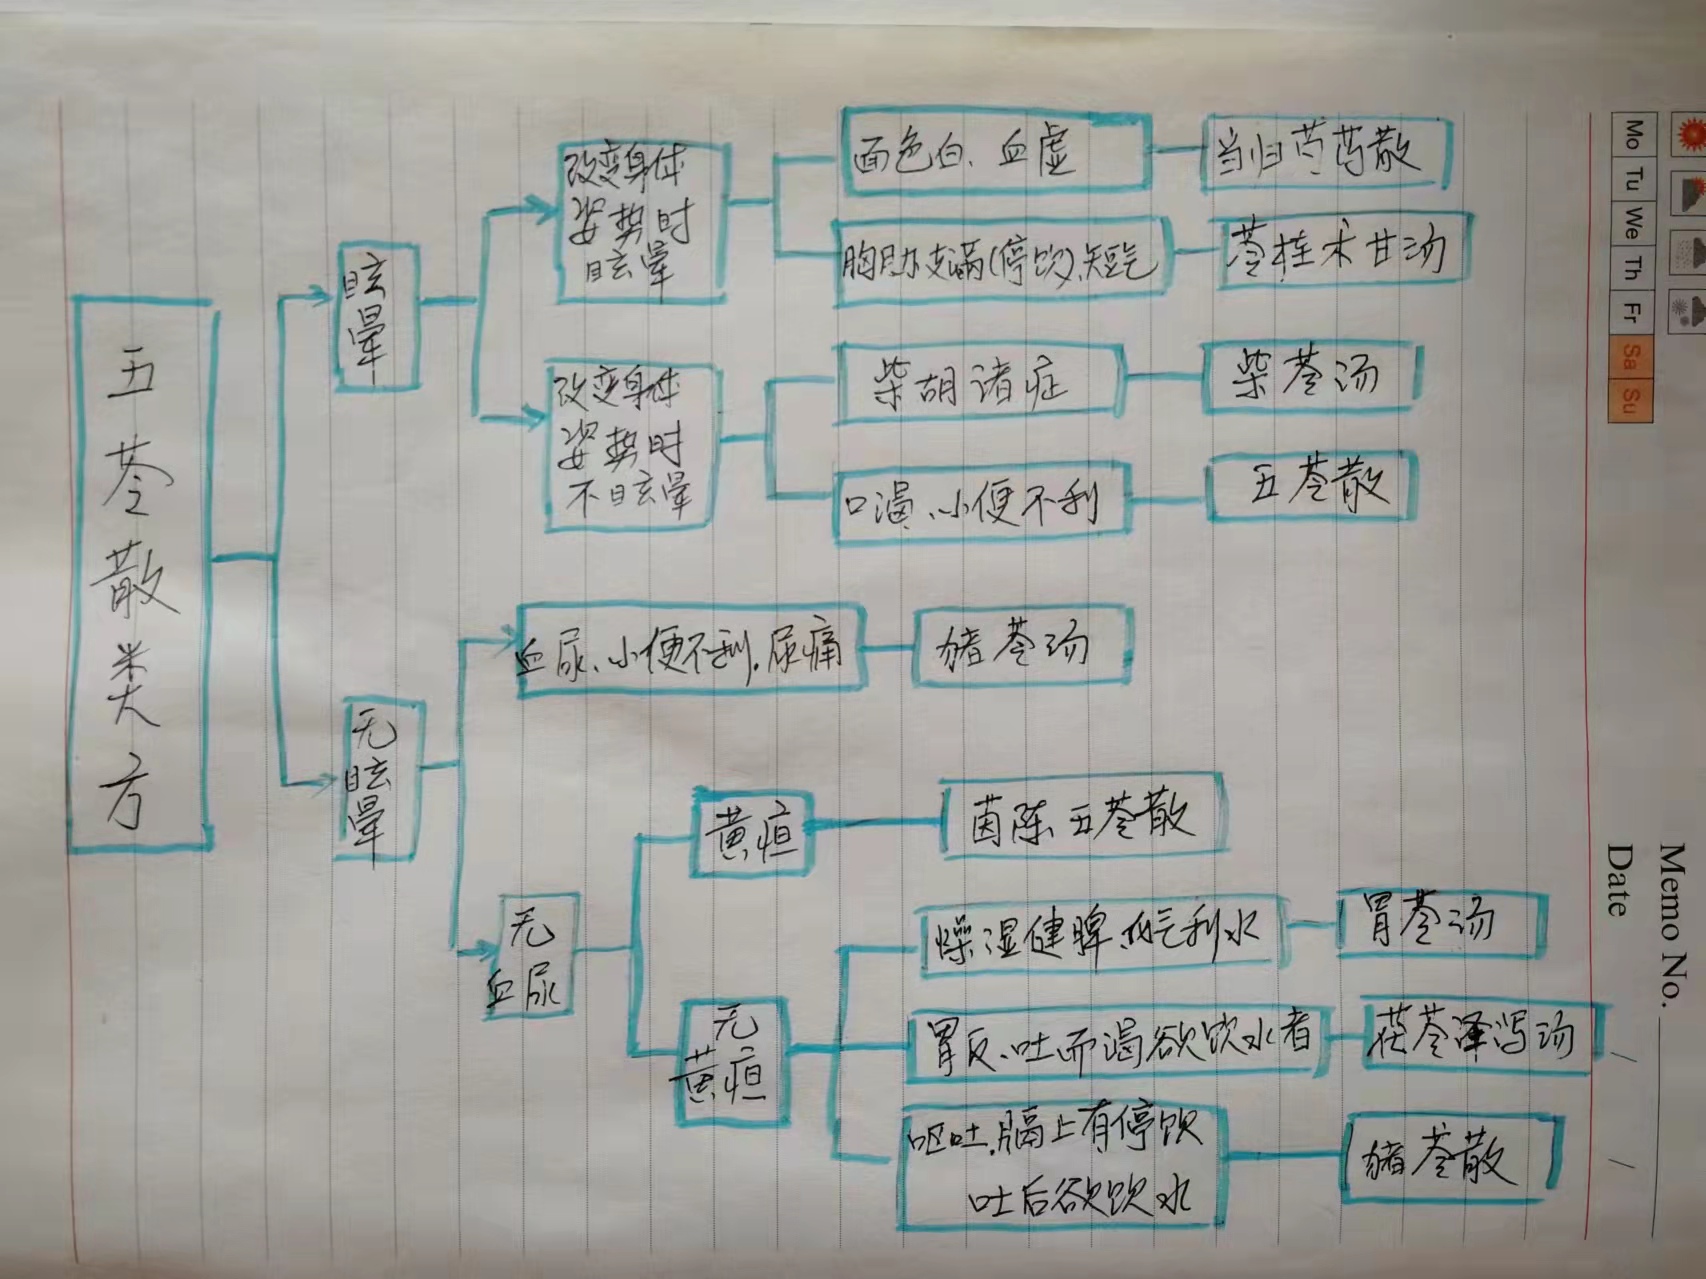 五苓散类方
眩晕
改变身体
姿势时
眩晕
面色白、血虚
当归芍药散
胸胁支满(停饮)、短气
苓桂术甘汤
改变身体
姿势时
不眩晕
柴胡诸症
柴苓汤
口渴、小便不利
五苓散
无眩晕
血尿、小便不利、尿痛
猪苓汤
无
血尿
黄疸
茵陈五苓散
无
黄疸
燥湿健脾、化气利水
胃苓汤
胃反、吐而渴欲饮水者
茯苓泽泻汤
呕吐、膈上有停饮
吐后欲饮水
猪苓散
Mo Tu We Th Fr Sa Su
Memo No.
Date / /